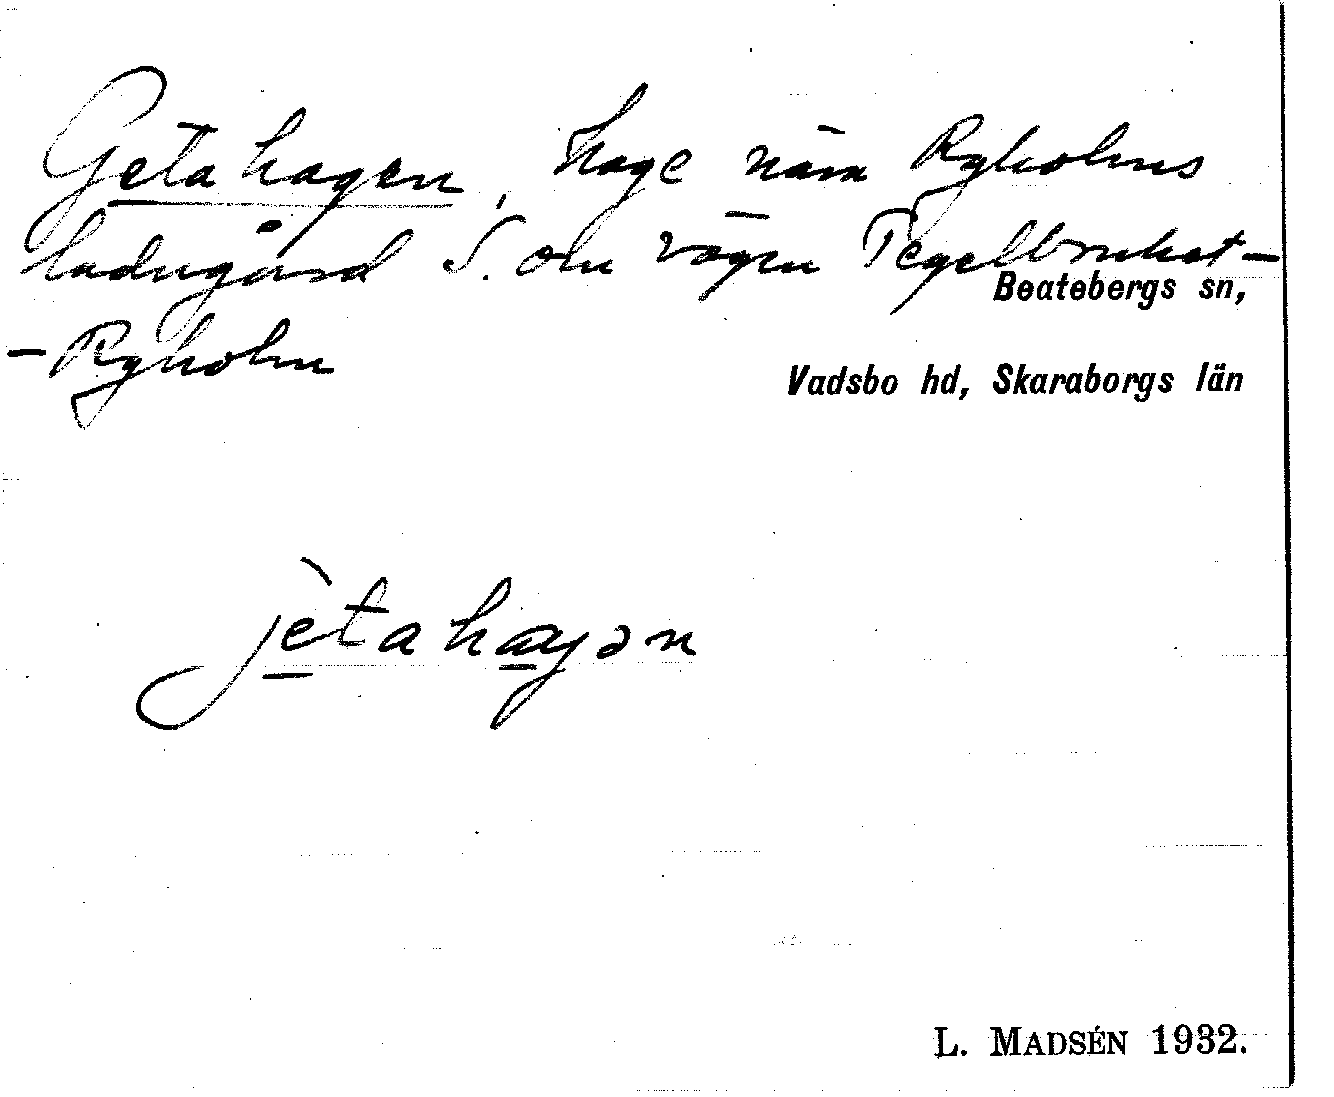 Getahagen, hage nära Ryholms
ladugård S. om vägen Tegelbruket-
Beatebergs sn,
-Ryholm
Vadsbo hd, Skaraborgs län
jètahaγən
L. MADSÉN 1932.